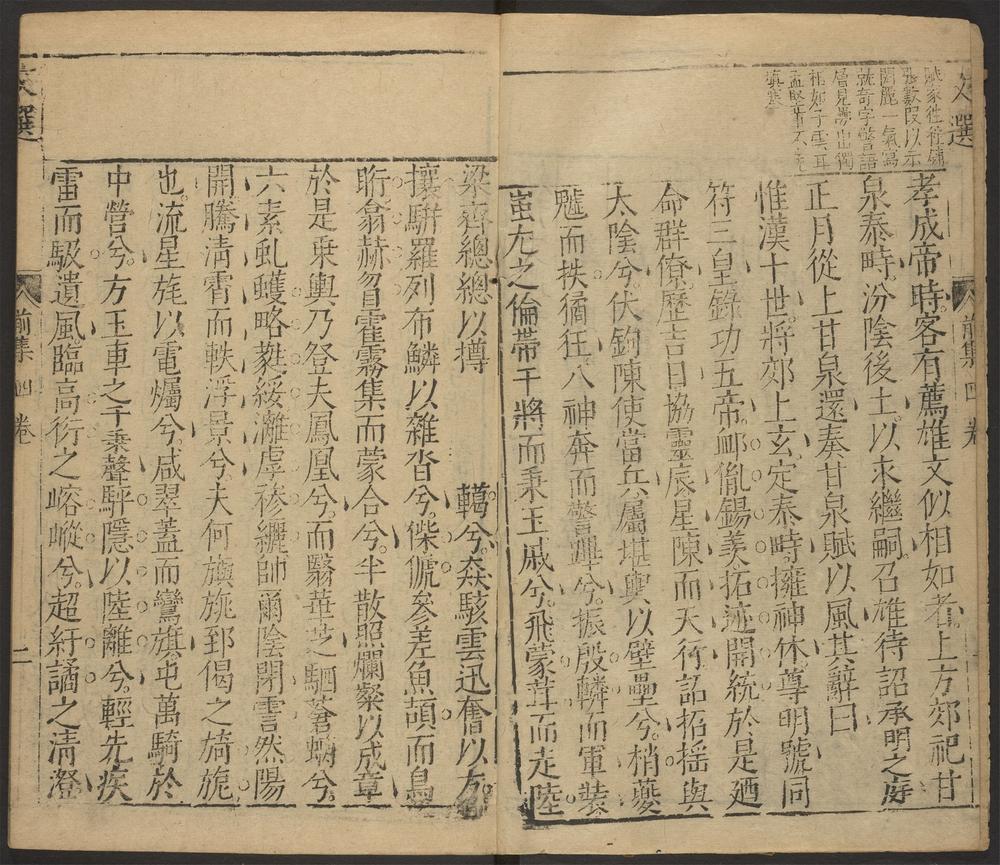 文選
賦家往往鋪
張數段以示
閎麗一氣寫
就奇字警語
層見疊出獨
相如子雲耳
孟堅輩不免
填塞
孝成帝時。客有薦雄文似相如者。上方郊祀甘
泉泰畤。汾陰後土。以求繼嗣。召雄待詔承明之庭
正月從上甘泉還奏甘泉賦以風其辭曰
惟漢十世。將郊上玄。定泰畤。擁神休。尊明號同
符三皇。錄功五帝。卹胤錫羨。拓迹開統。於是廼
命群僚。歷吉日。協靈辰。星陳而天行。詔招搖與
太陰兮。伏鉤陳使當兵。屬堪輿以壁壘兮。梢夔
魖而抶獝狂。八神奔而警蹕兮。振殷轔而軍裝
蚩尤之倫帶干將而秉玉戚兮。飛蒙茸而走陸
前集 四 卷
梁。齊總總以撙 轕兮。猋駭雲迅奮以方
攘駢羅列布。鱗以雜沓兮。傑傂參差。魚頡而鳥
䀪。翕赫曶霍。霧集而蒙合兮。半散照爛。粲以成章
於是乘輿乃登夫鳳凰兮。而翳華芝。駟蒼螭兮。
六素虬。蠖略蕤綏。灕虖襂纚。帥爾陰閉。霅然陽
開。騰清霄而軼浮景兮。夫何旟旐郅偈之旖旎
也。流星旄以電爥兮。咸翠蓋而鸞旗。屯萬騎於
中營兮。方玉車之千乘。聲駍隱以陸離兮。輕先疾
雷而馺遺風。臨高衍之嵱嵷兮。超紆譎之清澄
文選
前集 四 卷
二